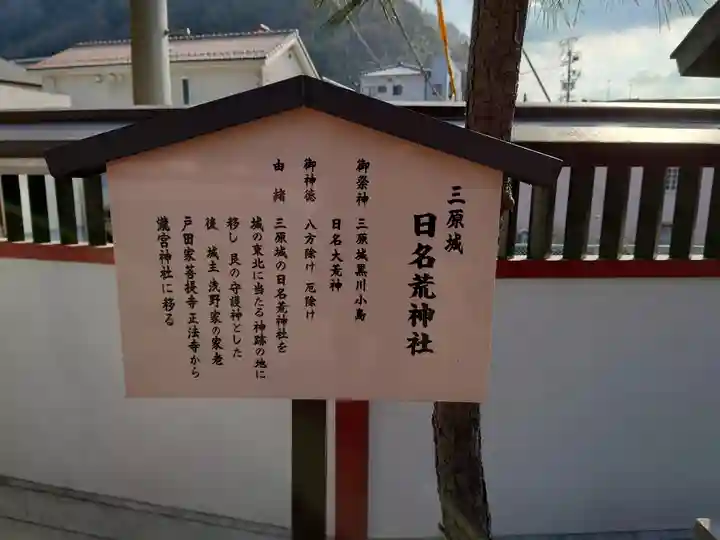 三原城
日名荒神社
御祭神 三原城黒川小島
日名大荒神
御神徳 八方除け 厄除け
由緒 三原城の日名荒神社を
城の東北に当たる神跡の地に
移し 艮の守護神とした
後 城主 浅野家の家老
戸田家菩提寺正法寺から
瀧宮神社に移る